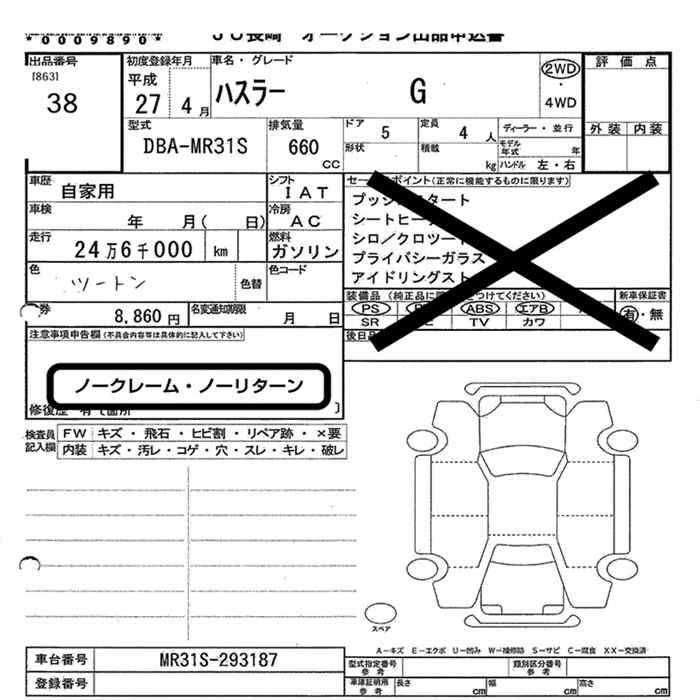 *0009890* JU長崎 オークション出品申込書
出品番号 初度登録年月 車名・グレード 評価点
[863] 平成 2WD
38 27 4月 ハスラー G ・
4WD
型式 排気量 ドア 5 定員 4 人 ディーラー・並行 外装 内装
DBA-MR31S 660 CC 形状 積載 kg モデル年式 年
ハンドル 左・右
車歴 自家用 シフト IAT セールスポイント(正常に機能するものに限ります)
車検 年 月( 日) 冷房 AC プッシュスタート
走行 24万6千000 km 燃料 ガソリン シートヒーター
色 ツートン 色替 色コード シロ/クロツートン
プライバシーガラス
アイドリングスト
券 8,860円 名変通知期限 月 日 装備品(純正品に○をつけてください) 新車保証書
PS ABS エアB 有・無
SR TV カワ
注意事項申告欄(不具合内容等は具体的に記入して下さい) 後日品
ノークレーム・ノーリターン
修復歴 有て箇所
検査員記入欄 FW キズ・飛石・ヒビ割・リペア跡・×要
内装 キズ・汚レ・コゲ・穴・スレ・キレ・破レ
スペア
A-キズ E-エクボ U-凹み W-補修跡 S-サビ C-腐食 XX-交換済
車台番号 MR31S-293187 型式指定番号参考 類別区分番号参考
登録番号 車庫証明用参考 長さ cm 幅 cm 高さ cm